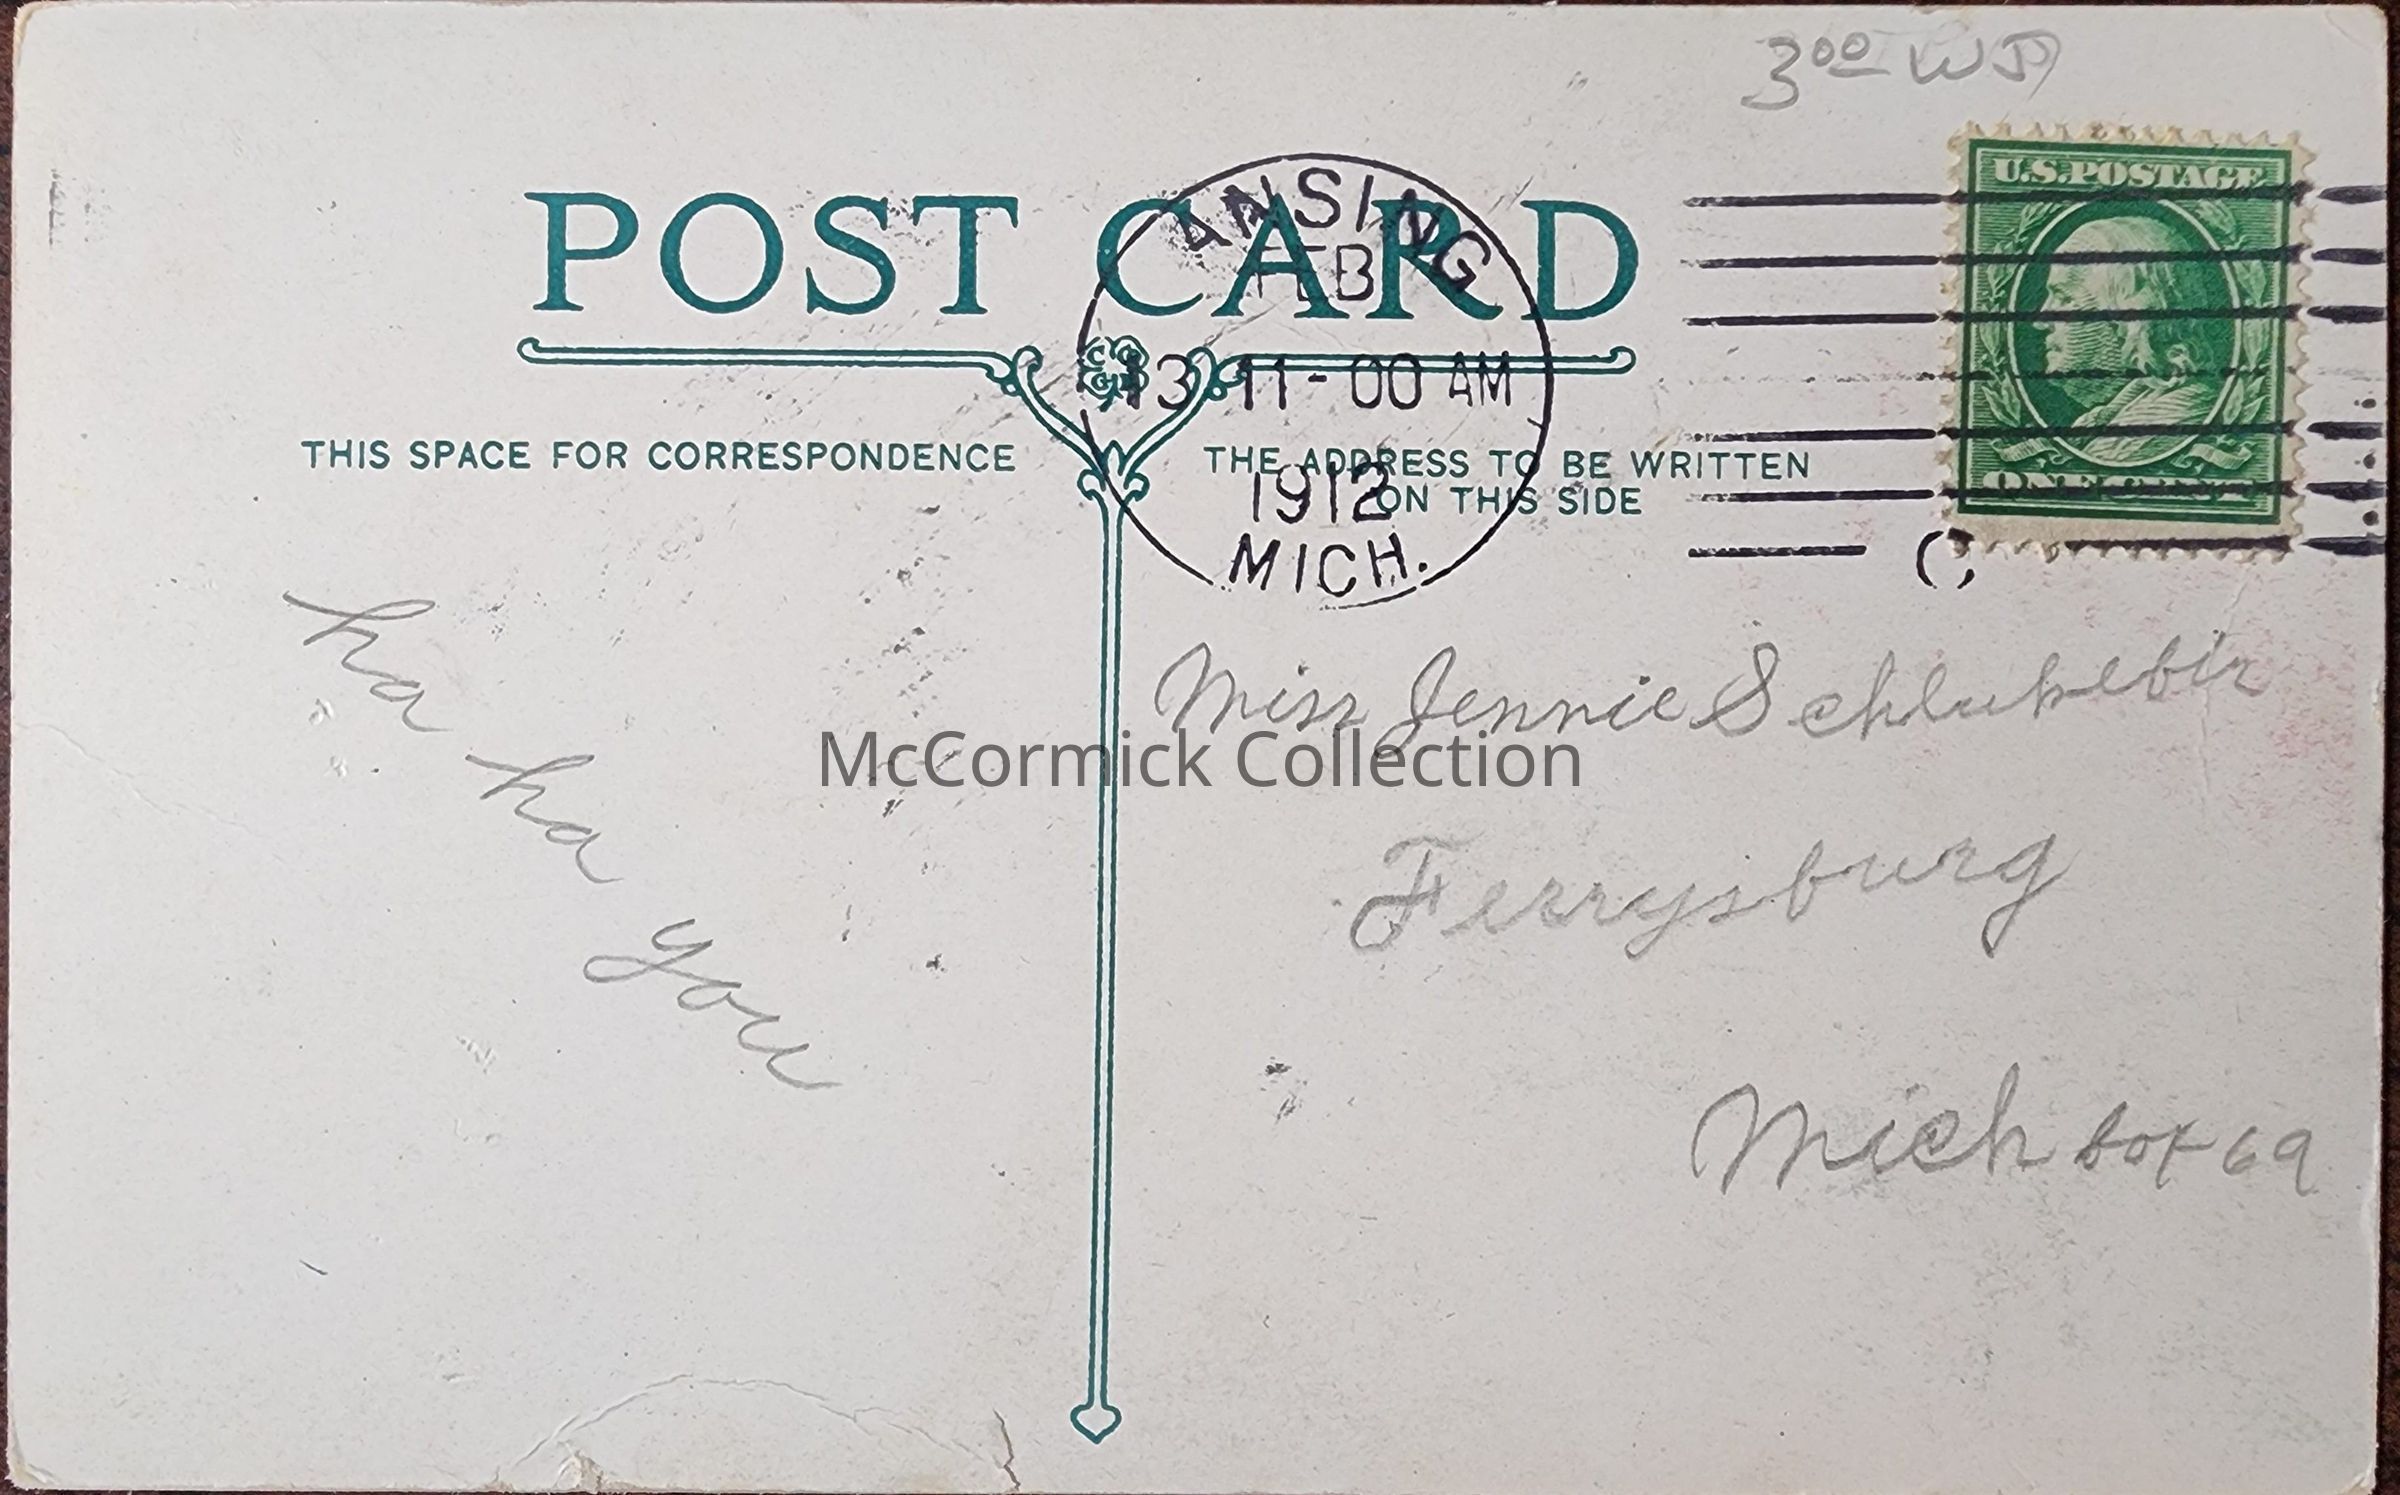 3⁰⁰ WJ
U.S. POSTAGE
POST CARD
ANSING
FEB
13 11-00 AM
1912
MICH.
THIS SPACE FOR CORRESPONDENCE
THE ADDRESS TO BE WRITTEN
ON THIS SIDE
ONE CENT
ha ha you
Miss Jennie Schlukebir
McCormick Collection
Ferrysburg
Mich box 69